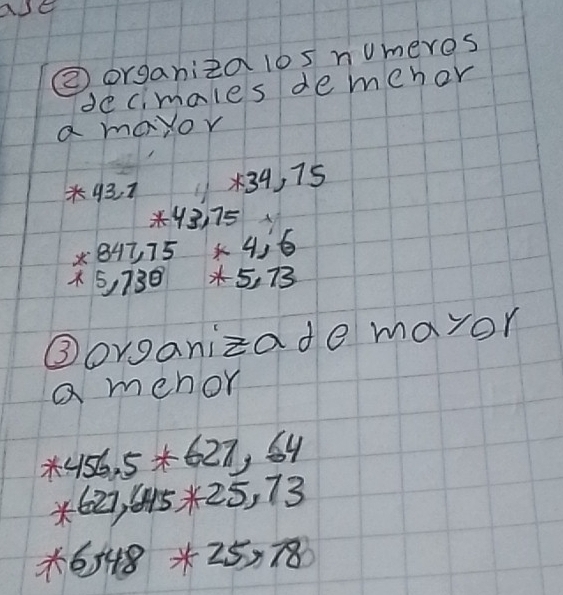 ② organiza los numeros
decimales de menor
a mayor
*43,1 *34,75
*43,75
*847,75 *4,6
*5,738 *5,73
③ organiza de mayor
a menor
*456,5 *627,64
*627,645 *25,73
*6,48 *25,78